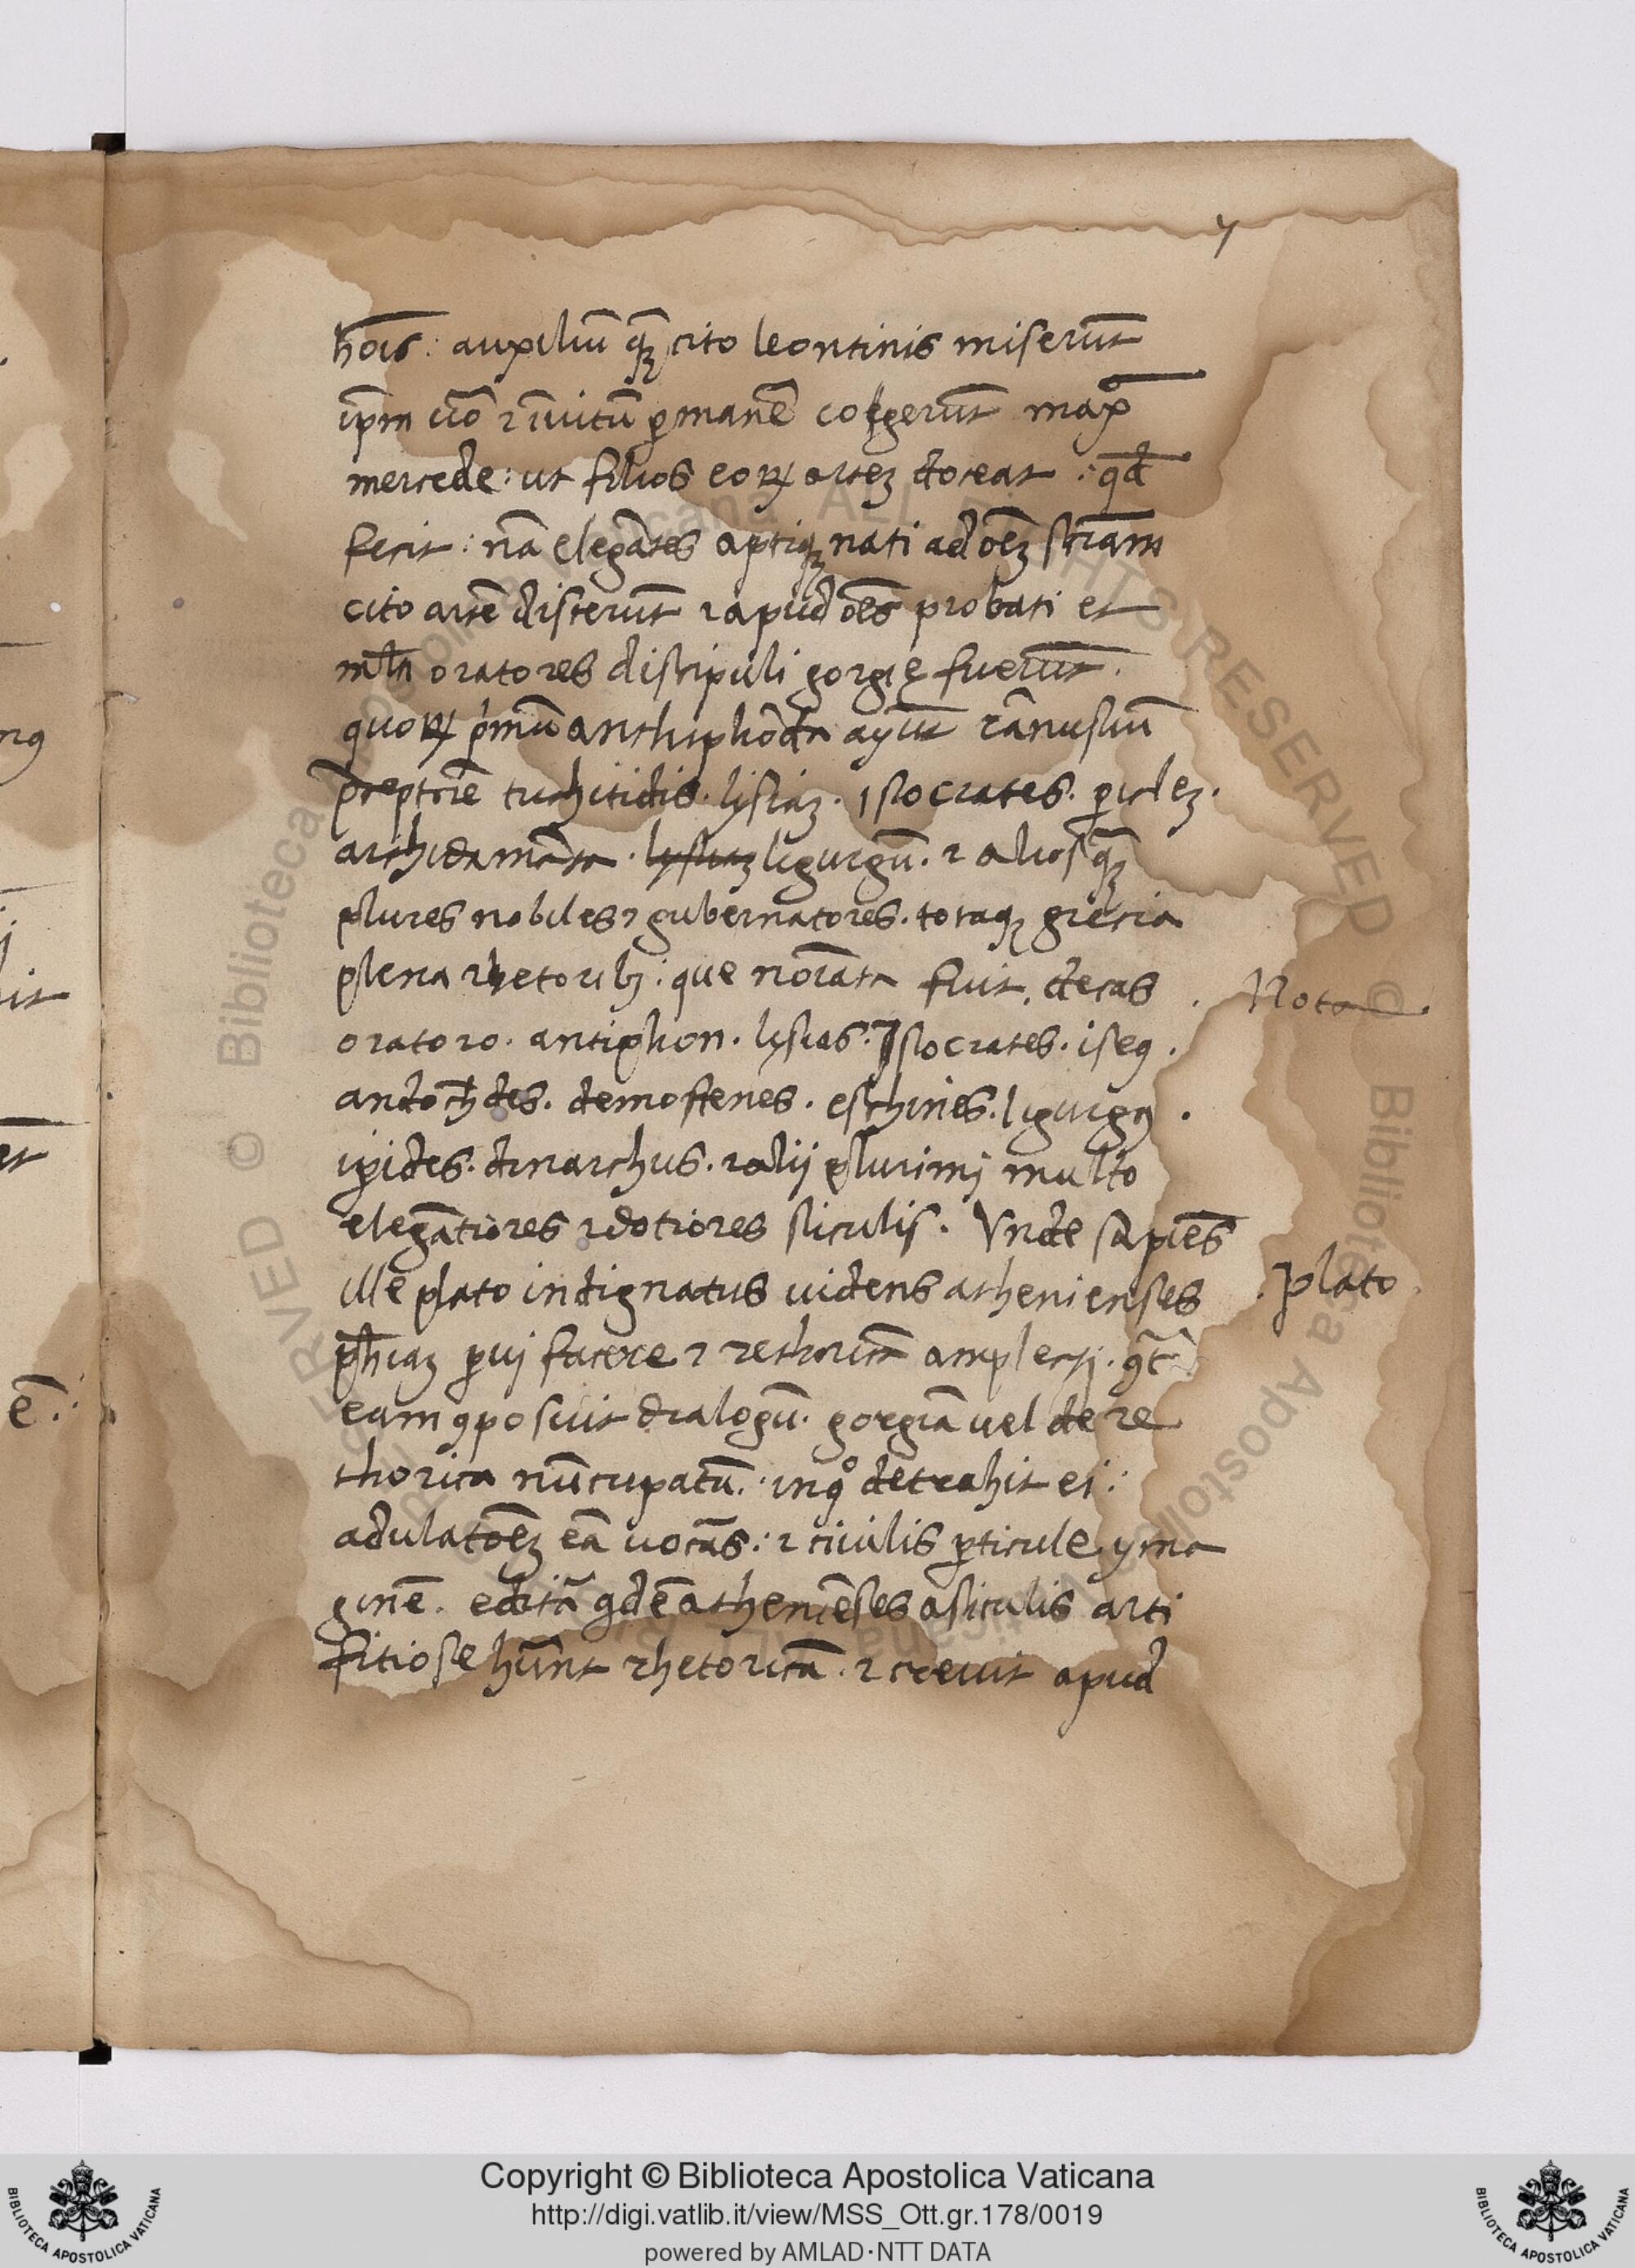 7
hōīs : auxiliū qȝ cito leontinis miserūt
ip̄m ūo ⁊ īuitū ꝑmanē coegerūt max̄
mercede : ut filios eoꝝ arteȝ doceat : qd̄
fecit : nā elegātes aptiqȝ nati ad oēȝ sciā̄m
cito artē discerūt ⁊ apud oēs probati et
mlti oratores discipuli gorgię fuerūt .
quoꝝ pͥmū anthiphōta rānusiū
p̄ceptorē tuchitidis . lisiaȝ . Isocrates . ꝑicleȝ .
archidamāta . ligurgū . ⁊ aliosqȝ
plures nobiles ⁊ gubernatores . totaqȝ grecia
plena rhetoribȝ : que noīata fuit . decas
oratoro . antiphon . lisias . Isocrates . iseꝯ .
andochides . demostenes . eschines . ligurgꝯ .
iꝑides . dinarchus . ⁊ alij plurimj multo
elegātiores ⁊ dotiores siculis . Vnde sapiēs
ille plato indignatus uidens athenienses
ph̄iaȝ ꝑuj facere ⁊ rethoricā amplectj . ꝯt̄
eam ꝯposuit dialogū . gorgiā uel de re
thorica nūcupatū . : in qͦ detrahit ei :
adulatōeȝ eā uocās : ⁊ ciuilis ꝑticule yma
ginē . editā qdē athenieses a siculis arti
fitiose hūnt rhetoricā . ⁊ creuit apud
Nota .
. plato .
nꝯ
it
et
ē :
Copyright © Biblioteca Apostolica Vaticana
http://digi.vatlib.it/view/MSS_Ott.gr.178/0019
powered by AMLAD·NTT DATA
BIBLIOTECA APOSTOLICA VATICANA
BIBLIOTECA APOSTOLICA VATICANA